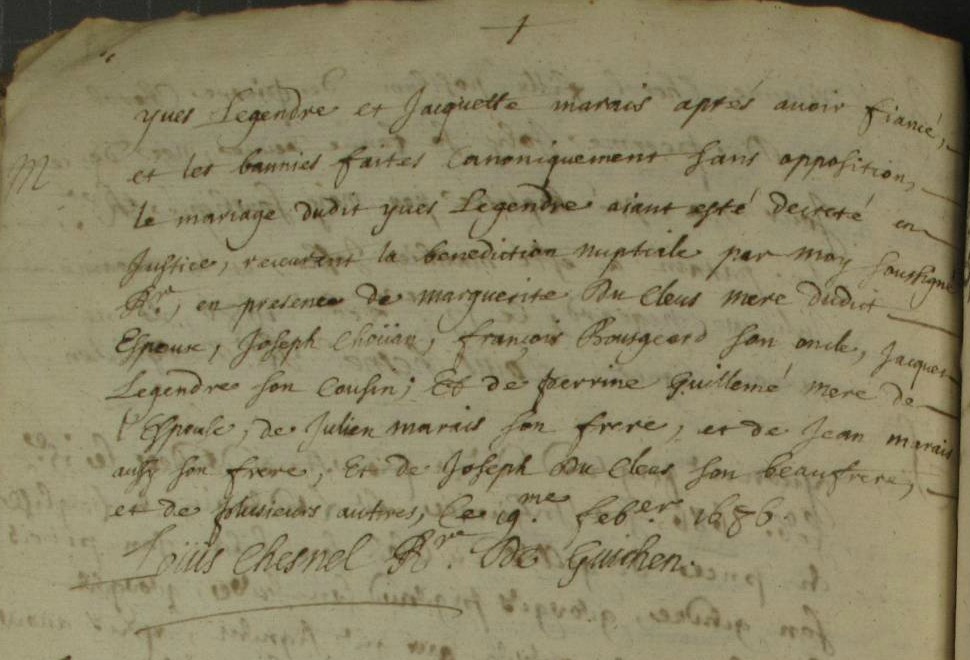 M
yves Legendre et Jacquette marais aprés avoir fiancé,
et les bannies faites Canoniquement sans opposition,
le mariage dudit yves Legendre aiant esté decreté en
Justice, receurent la benediction nuptiale par moy soussigné
Rr, en presence de marguerite Du Cleus mere dudit
Espoux, Joseph Choüan, françois Bourgeard son oncle, Jacques
Legendre son Cousin; Et de perrine Guillemé mere de
l'Espouse, de Julien marais son frere, et de Jean marais
aussy son frere, Et de Joseph Du Cleus son beaufrere,
et de plusieurs autres, Ce 19me feber 1686
Loüis Chesnel Rre De Guichen.